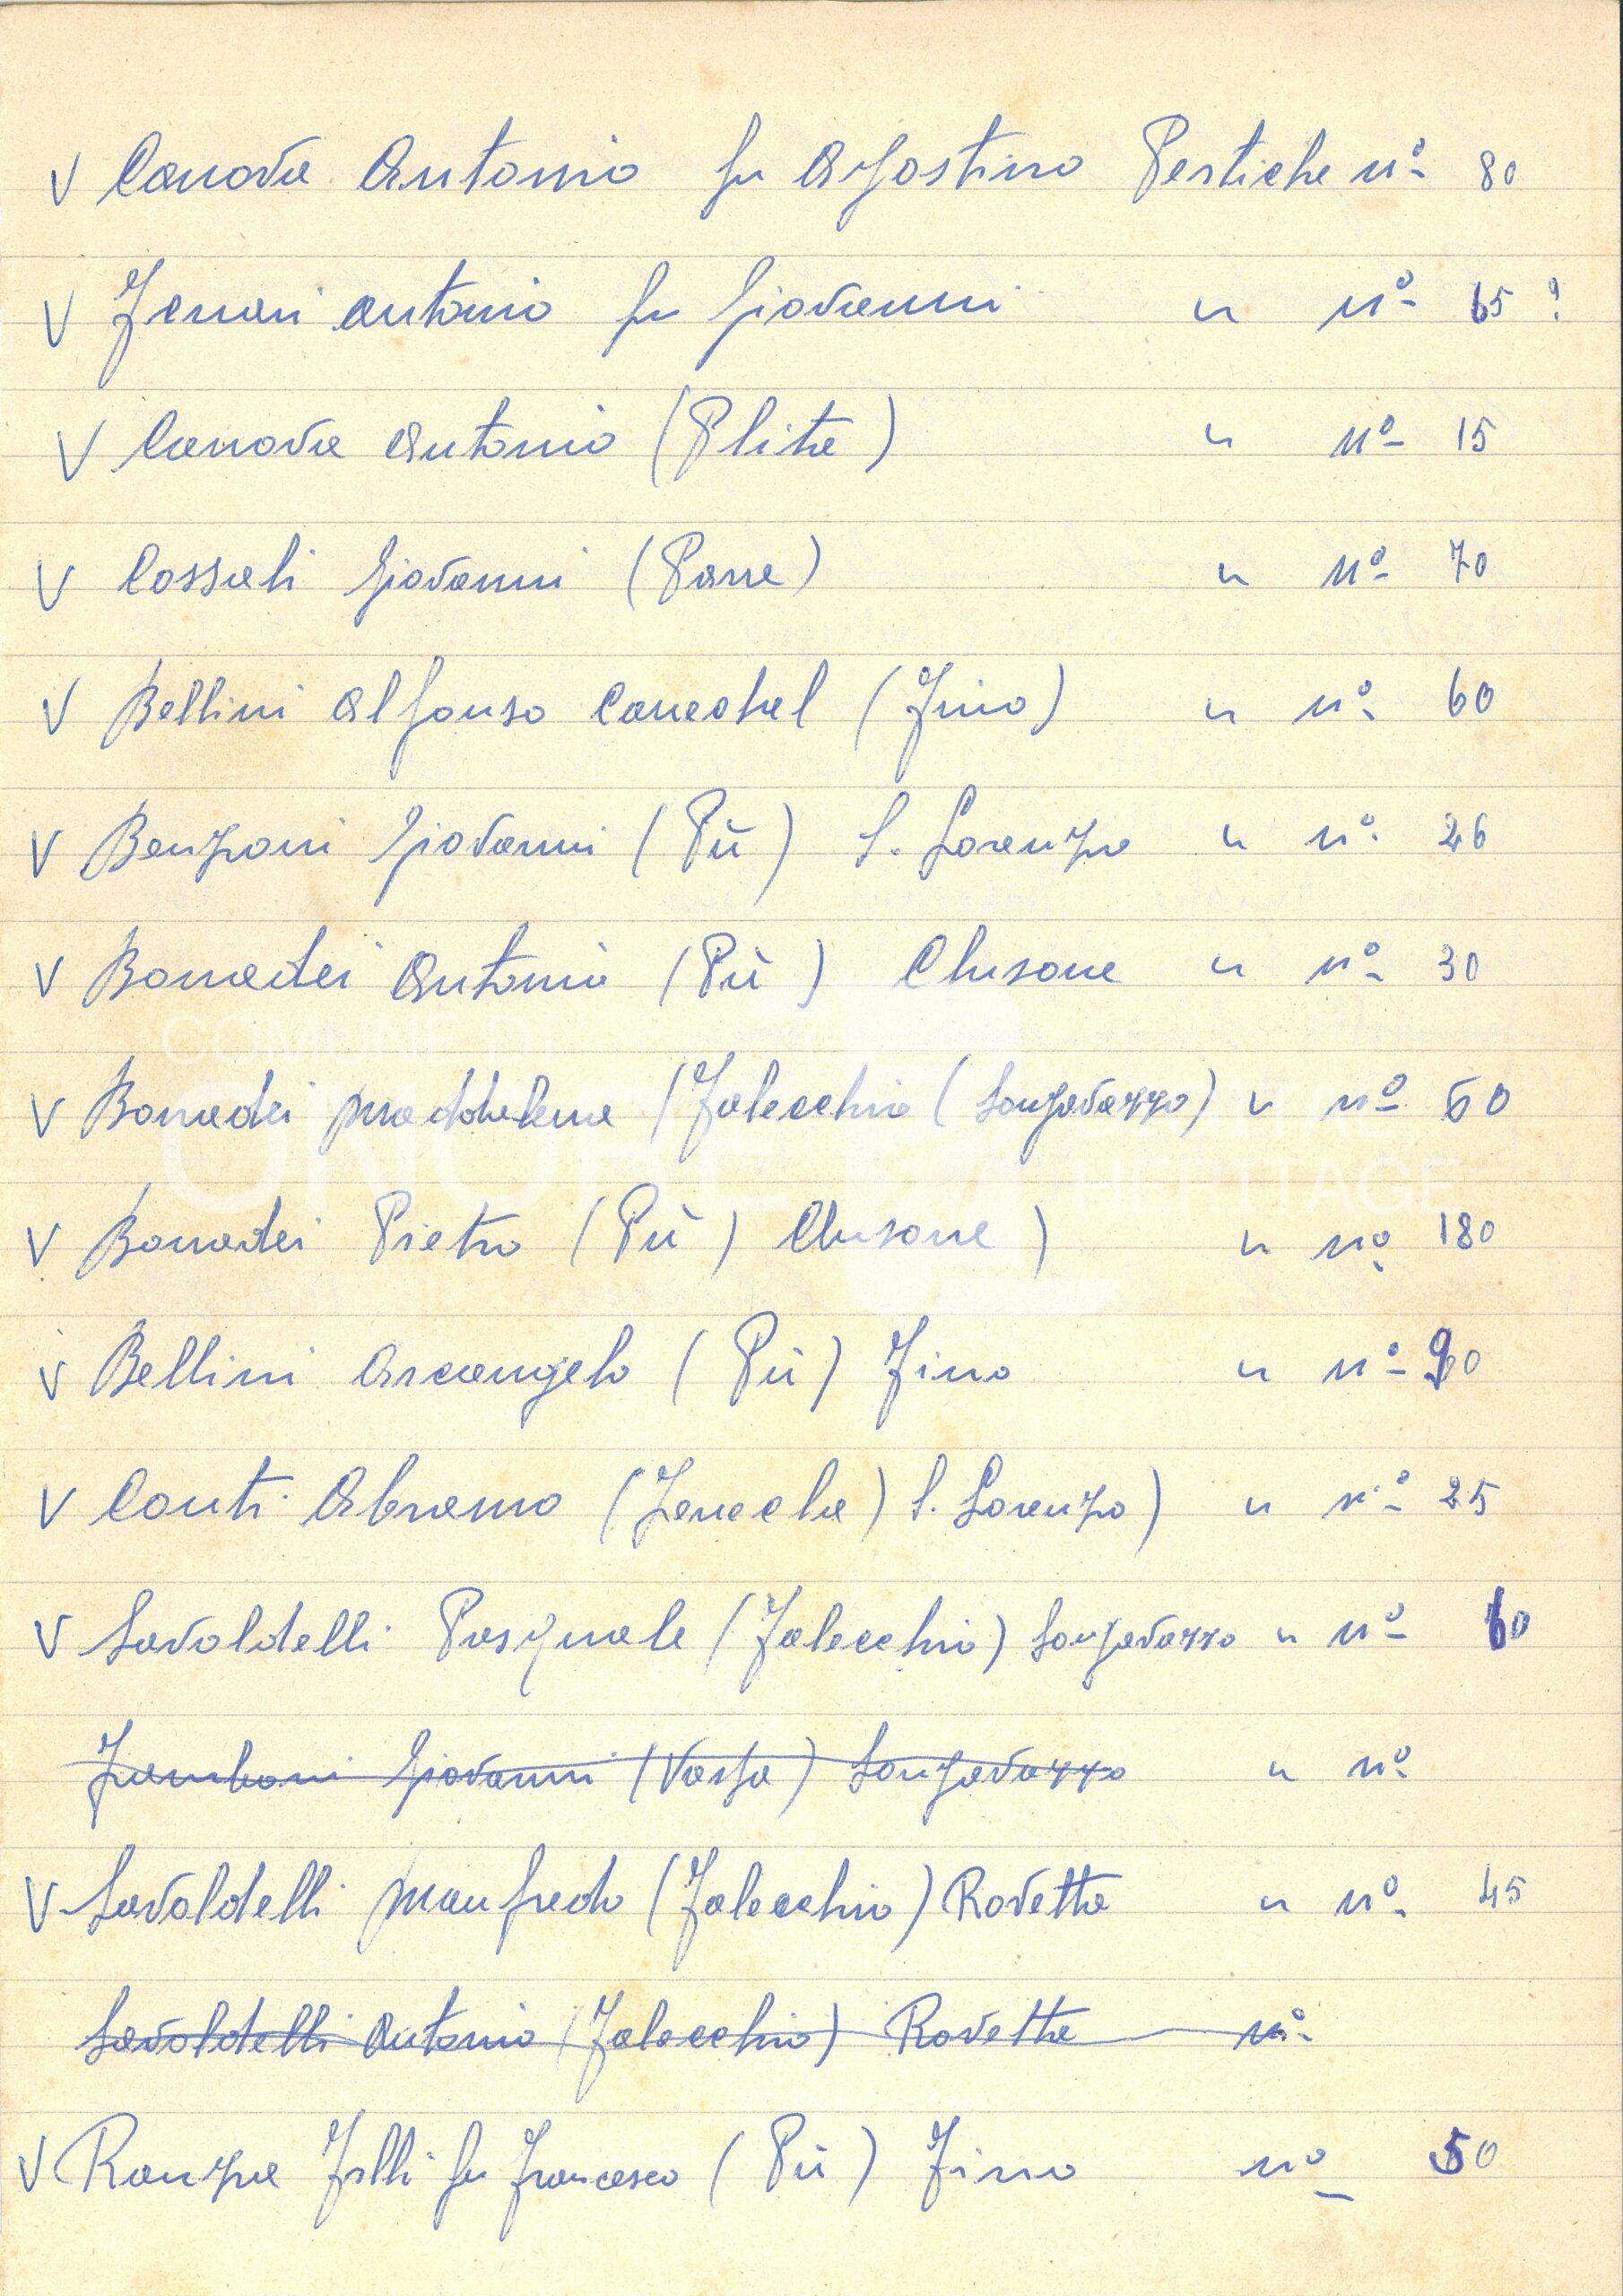 V Canova Antonio fu Agostino Pertiche nº 80
V Ferrari Antonio fu Giovanni " nº 65 ?
V Canova Antonio (Plita) " nº 15
V Cossali Giovanni (Parre) " nº 70
V Bellini Alfonso (Fino) " nº 60
V Benzoni Giovanni (Pù) S. Lorenzo " nº 26
V Bonadei Antonio (Pù) Clusone " nº 30
V Bonadei Maddalena (Falecchio (Songavazzo) " nº 60
V Bonadei Pietro (Pù) Clusone) " nº 180
V Bellini Arcangelo (Pù) Fino " nº 90
V Conti Abramo S. Lorenzo) " nº 25
V Savoldelli Pasquale (Falecchio) Songavazzo " nº 60
Zamboni Giovanni Songavazzo " nº
V Savoldelli Manfredo (Falecchio) Rovetta " nº 45
Savoldelli Antonio (Falecchio) Rovetta nº
V Ranza F.lli fu Francesco (Pù) Fino nº 50
COMUNE DI
ONORE
HERITAGE